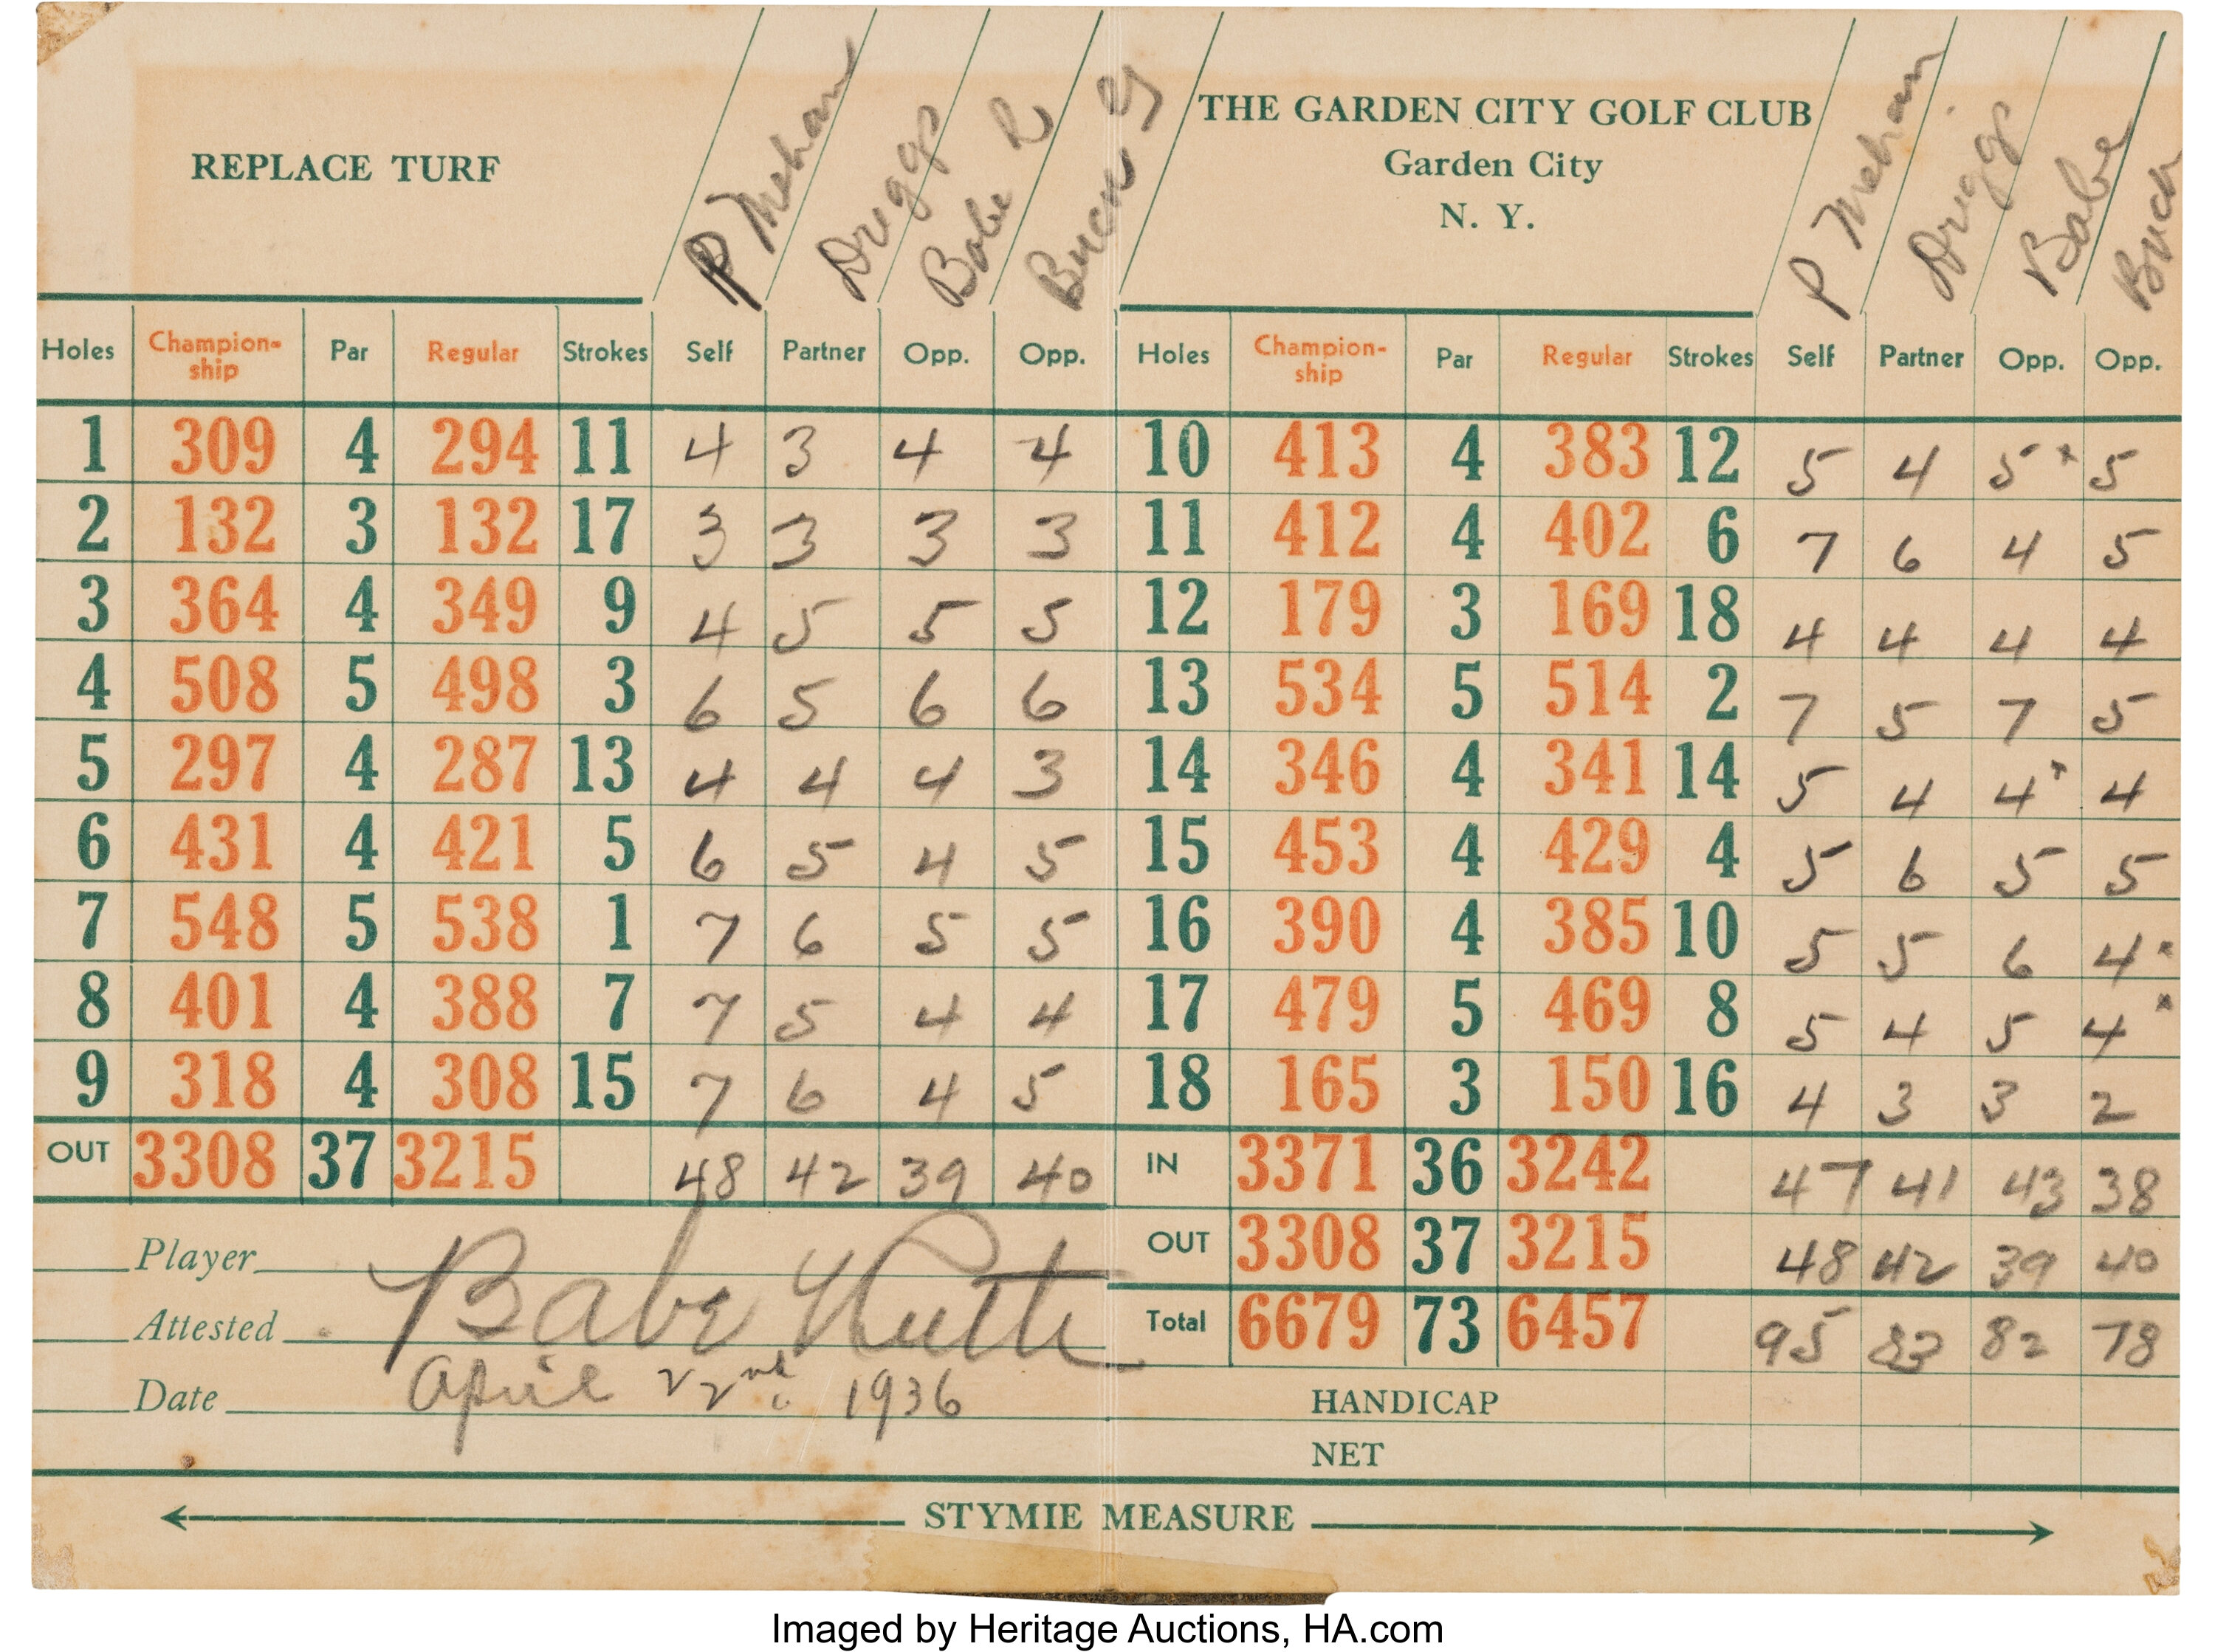 REPLACE TURF
P Mehan Driggs Babe R Buck G
THE GARDEN CITY GOLF CLUB
Garden City
N. Y.
P Mehan Driggs Babe Buck
Holes Champion-ship Par Regular Strokes Self Partner Opp. Opp. Holes Champion-ship Par Regular Strokes Self Partner Opp. Opp.
1 309 4 294 11 4 3 4 4 10 413 4 383 12 5 4 5* 5
2 132 3 132 17 3 3 3 3 11 412 4 402 6 7 6 4 5
3 364 4 349 9 4 5 5 5 12 179 3 169 18 4 4 4 4
4 508 5 498 3 6 5 6 6 13 534 5 514 2 7 5 7 5
5 297 4 287 13 4 4 4 3 14 346 4 341 14 5 4 4* 4
6 431 4 421 5 6 5 4 5 15 453 4 429 4 5 6 5 5
7 548 5 538 1 7 6 5 5 16 390 4 385 10 5 5 6 4*
8 401 4 388 7 7 5 4 4 17 479 5 469 8 5 4 5 4*
9 318 4 308 15 7 6 4 5 18 165 3 150 16 4 3 3 2
OUT 3308 37 3215 48 42 39 40 IN 3371 36 3242 47 41 43 38
Player OUT 3308 37 3215 48 42 39 40
Attested Babe Ruth Total 6679 73 6457 95 83 82 78
Date April 22nd. 1936 HANDICAP
NET
STYMIE MEASURE
Imaged by Heritage Auctions, HA.com